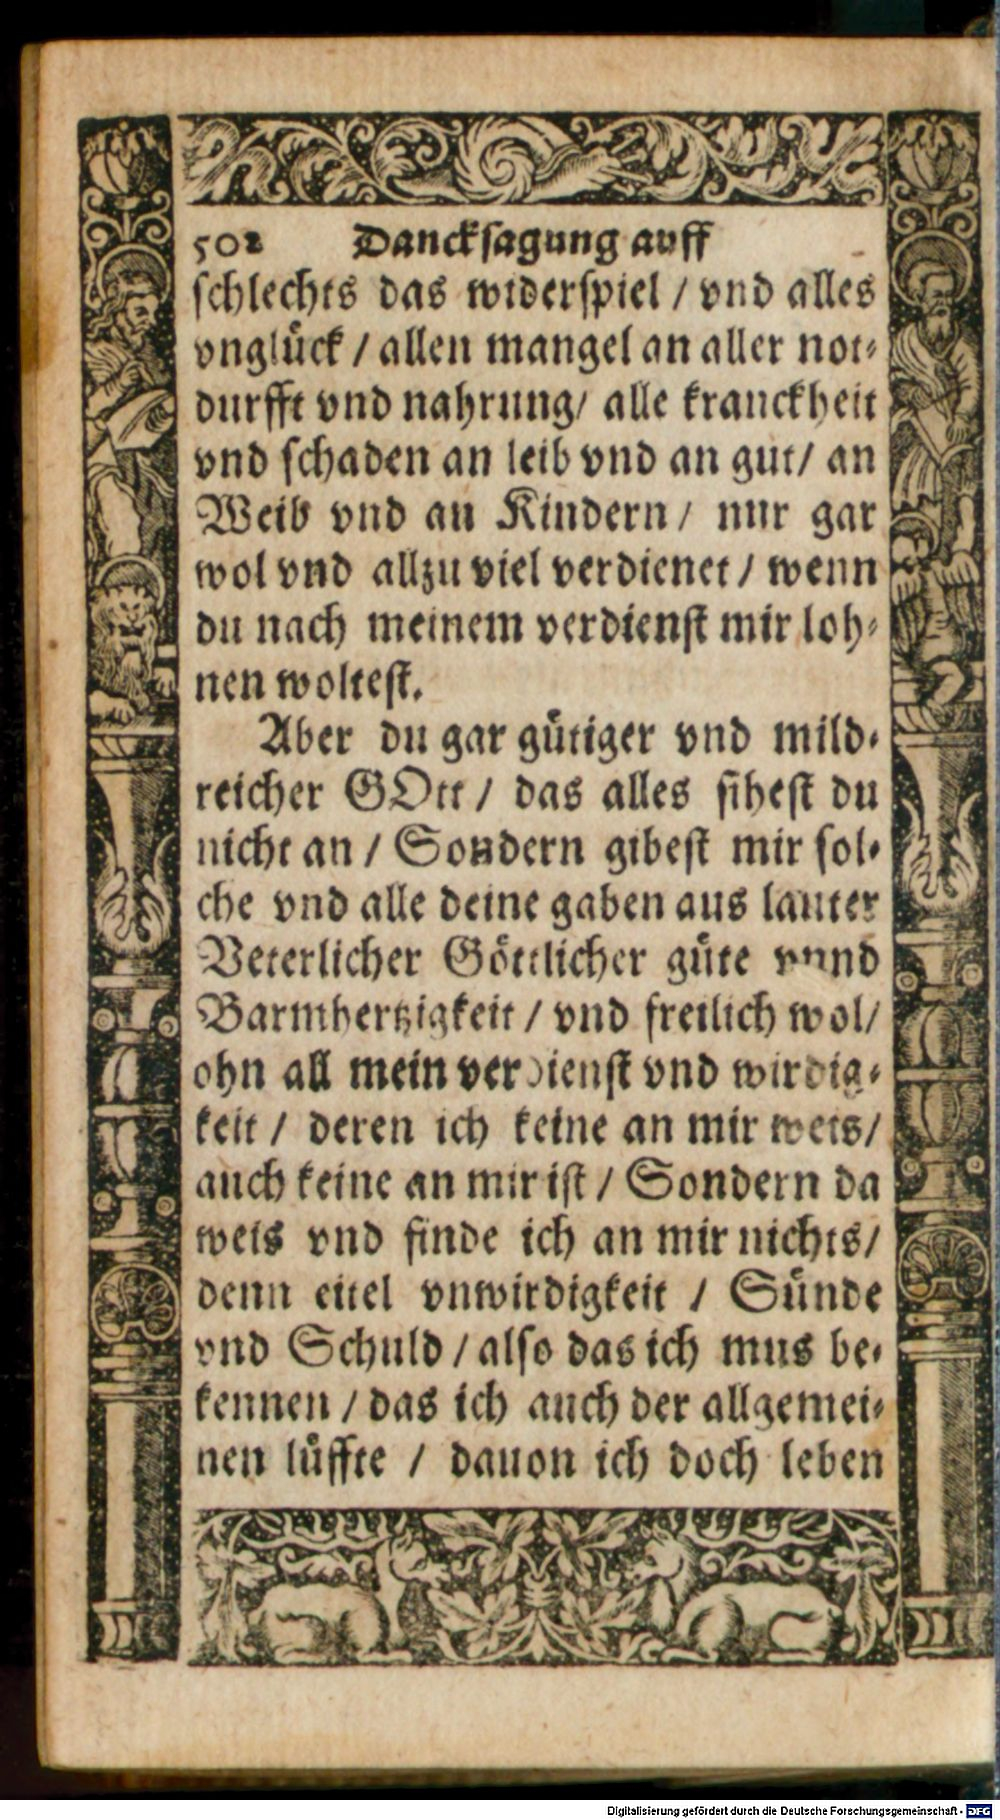 502 Dancksagung auff
schlechts das widerspiel / vnd alles
vnglück / allen mangel an aller not-
durfft vnd nahrung/ alle kranckheit
vnd schaden an leib vnd an gut/ an
Weib vnd an Kindern / nur gar
wol vnd allzu viel verdienet / wenn
du nach meinem verdienst mir loh-
nen woltest.
Aber du gar gütiger vnd mild-
reicher GOtt / das alles sihest du
nicht an / Sondern gibest mir sol-
che vnd alle deine gaben aus lauter
Veterlicher Göttlicher güte vnnd
Barmhertzigkeit / vnd freilich wol/
ohn all mein verdienst vnd wirdig-
keit / deren ich keine an mir weis/
auch keine an mir ist / Sondern da
weis vnd finde ich an mir nichts/
denn eitel vnwirdigkeit / Sünde
vnd Schuld / also das ich mus be-
kennen / das ich auch der allgemei-
nen lüffte / dauon ich doch leben
Digitalisierung gefördert durch die Deutsche Forschungsgemeinschaft - DFG